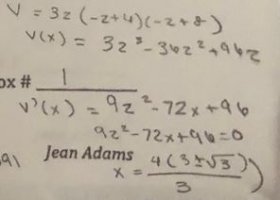 V = 3z(-z+4)(-z+8)
V(x) = 3z³-36z²+96z
ox # 1
V'(x) = 9z²-72x+96
9z²-72x+96=0
91 Jean Adams
x = 4(3±√3)/3)